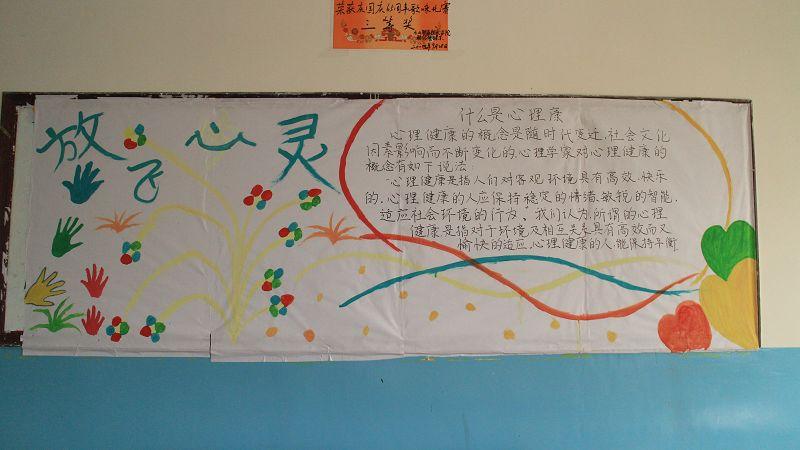 荣获庆国庆65周年歌咏比赛
三等奖
放飞心灵
什么是心理康
心理健康的概念是随时代变迁、社会文化
因素影响而不断变化的、心理学家对心理健康的
概念有如下说法：
心理健康是指人们对客观环境具有高效、快乐
的、心理健康的人应保持稳定的情绪、敏锐的智能、
适应社会环境的行为、我们认为、所谓的心理
健康是指对于环境及相互关系具有高效而又
愉快的适应、心理健康的人、能保持平衡